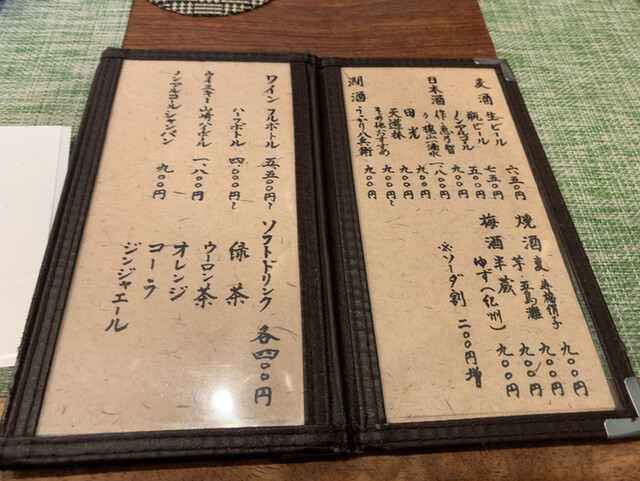 麦酒 生ビール 六五〇円
瓶ビール 七五〇円
ノンアルコール 五〇〇円
日本酒 作 恵乃智 九〇〇円
〃 槐山一滴水 一、八〇〇円
田光 九〇〇円
天遊琳 九〇〇円
その他おすすめ 九〇〇円~
燗酒 うっかり八兵衛 九〇〇円
焼酒 麦 寿福絹子 九〇〇円
芋 五島灘 九〇〇円
梅酒 半蔵 九〇〇円
ゆず(紀州) 九〇〇円
※ソーダ割 二〇〇円増
ワイン フルボトル 五、五〇〇円~
ハーフボトル 四、〇〇〇円~
ウイスキー 山崎ハイボトル 一、八〇〇円
ノンアルコールシャンパン 九〇〇円
ソフトドリンク 各四〇〇円
緑茶
ウーロン茶
オレンジ
コーラ
ジンジャエール